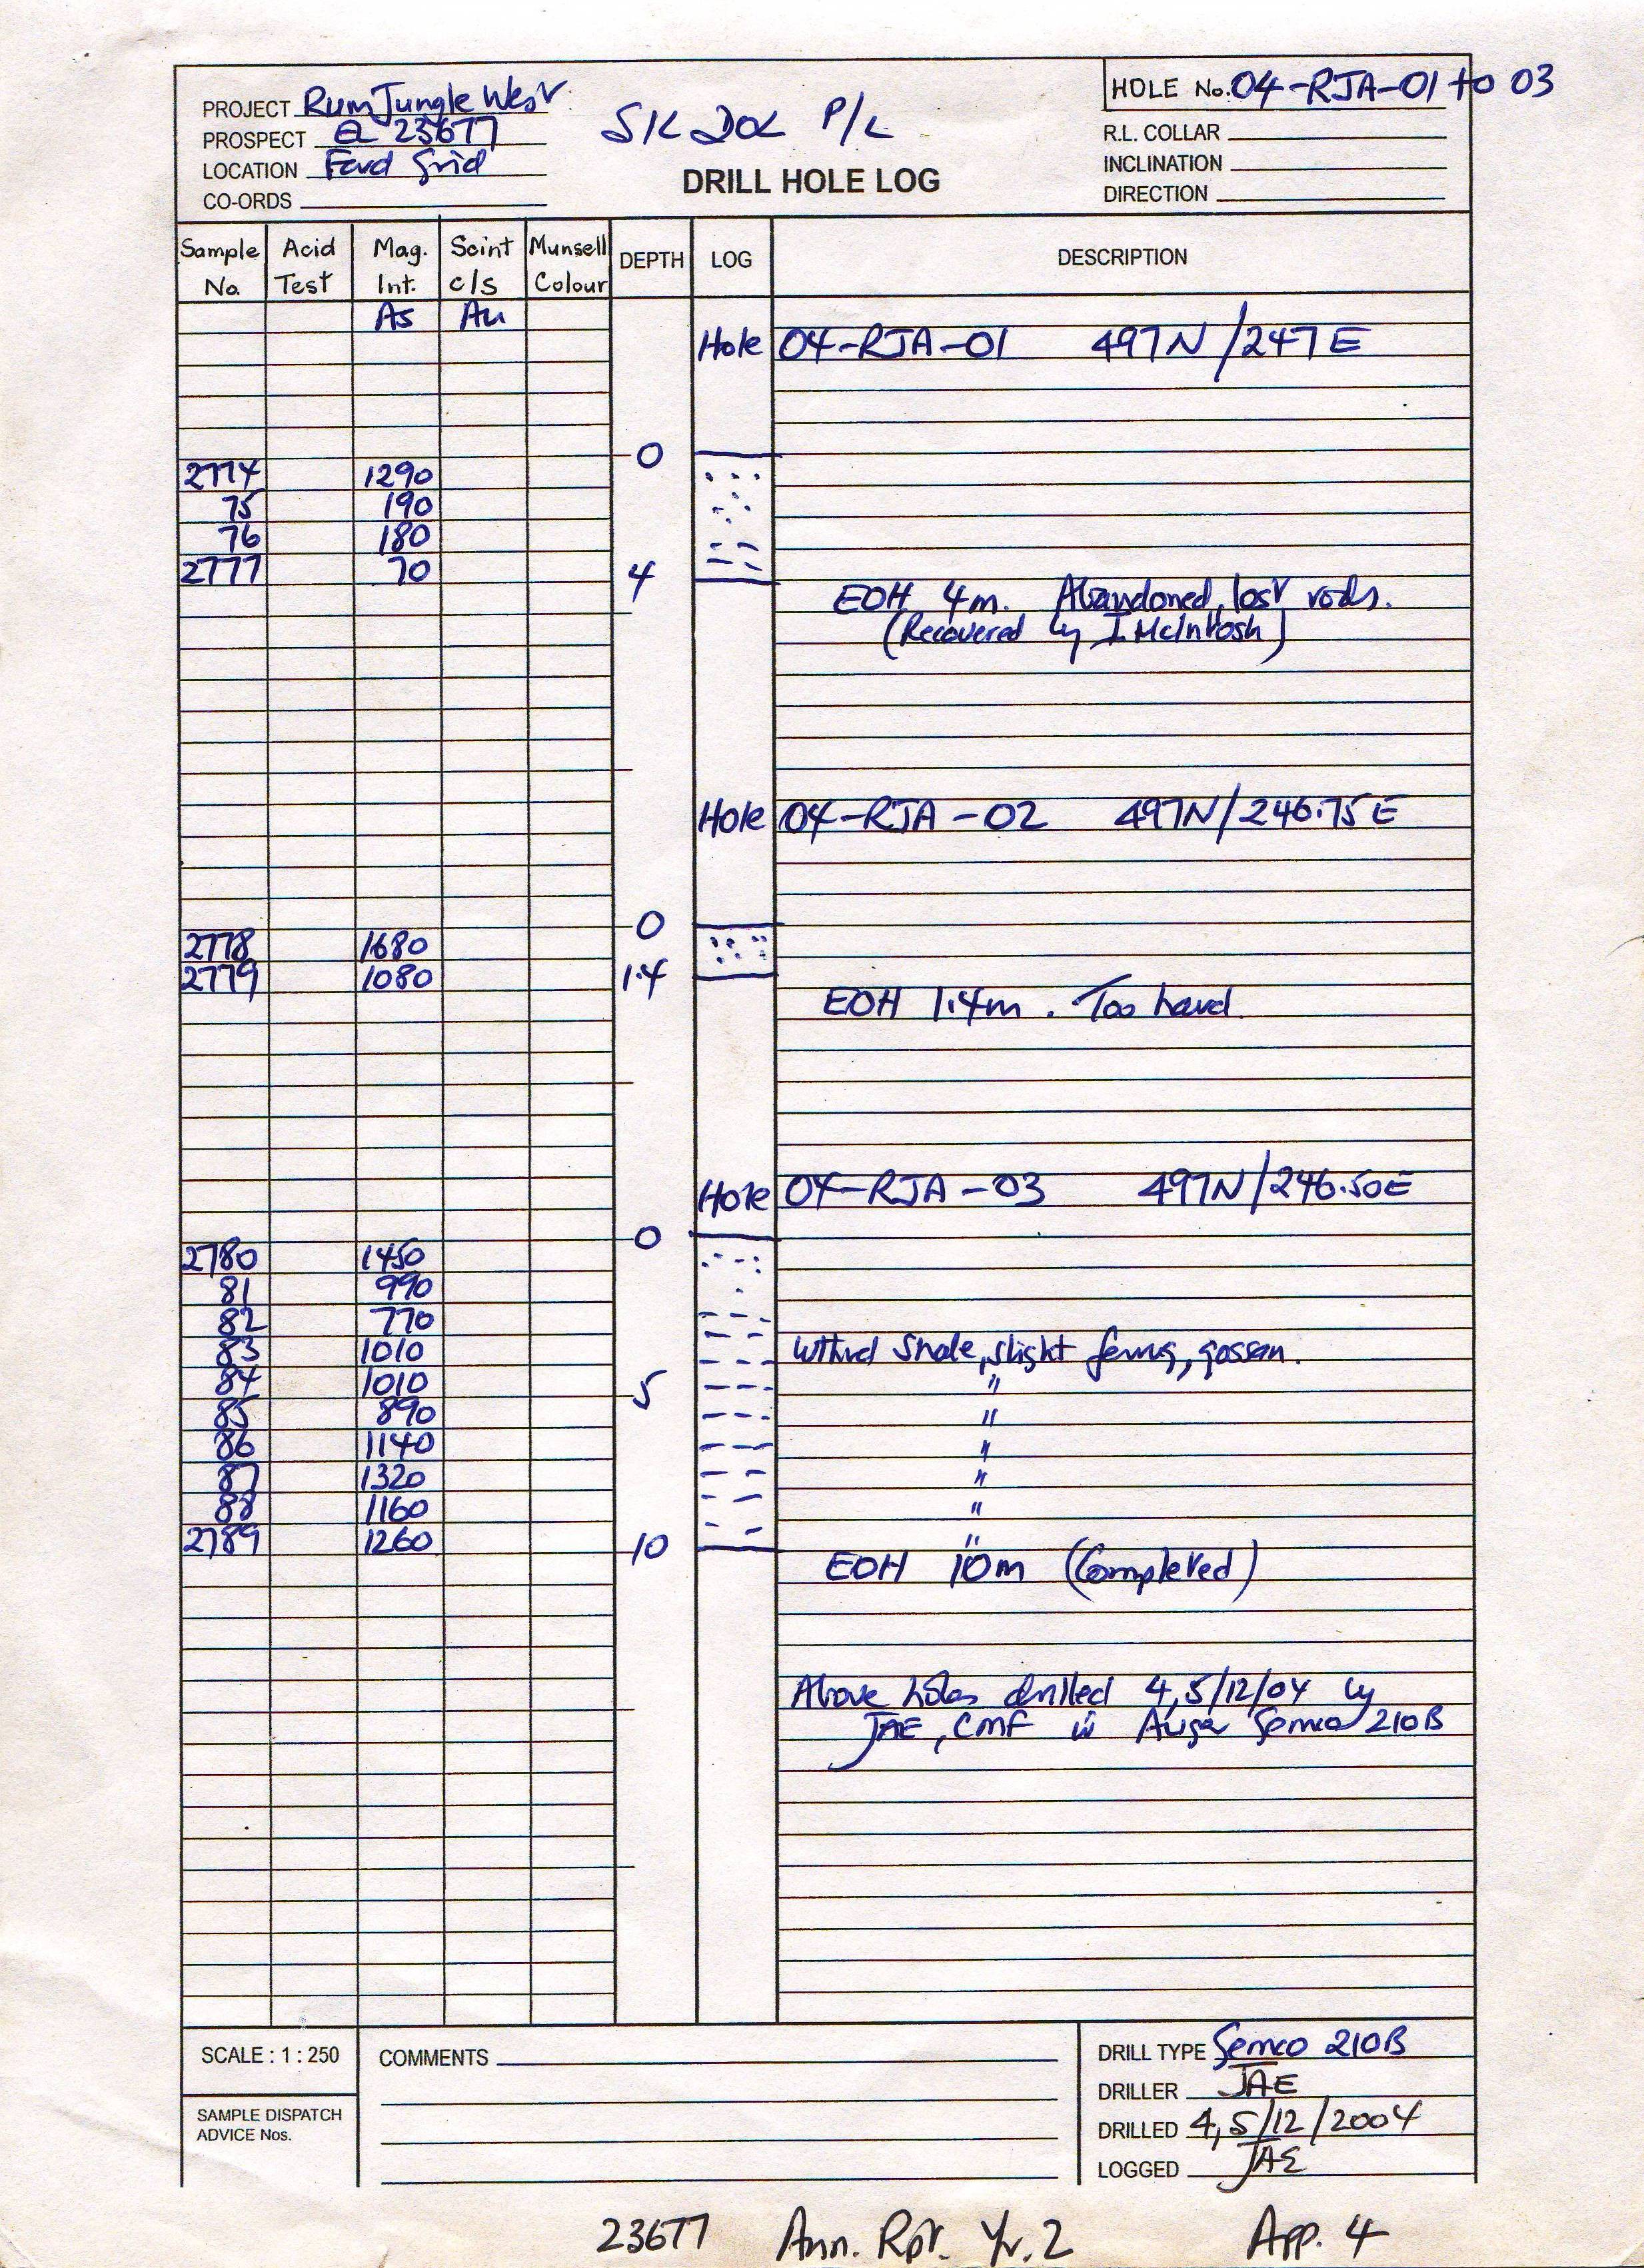 HOLE No. 04-RJA-01 to 03
PROJECT Rum Jungle West
PROSPECT EL 23677
LOCATION Ford Grid
CO-ORDS
P/L
DRILL HOLE LOG
R.L. COLLAR
INCLINATION
DIRECTION
Sample No. Acid Test Mag. Int. Scint c/s Munsell Colour DEPTH LOG DESCRIPTION
As Au
Hole 04-RJA-01 497N/247E
0
2774 1290
75 190
76 180
2777 70 4
EOH 4m. Abandoned, lost rods.
(Recovered by I McIntosh)
Hole 04-RJA-02 497N/246.75E
0
2778 1680
2779 1080 1.4
EOH 1.4m. Too hard.
Hole 04-RJA-03 497N/246.50E
0
2780 1450
81 990
82 770
83 1010 Wthrd Shale, slight ferrug, gossan.
84 1010 5 "
85 890 "
86 1140 "
87 1320 "
88 1160 "
2789 1260 10 "
EOH 10m (Completed)
Above holes drilled 4,5/12/04 by
JAE, CMF w Auger Gemco 210B
SCALE : 1 : 250
COMMENTS
SAMPLE DISPATCH
ADVICE Nos.
DRILL TYPE Gemco 210B
DRILLER JAE
DRILLED 4,5/12/2004
LOGGED JAE
23677 Ann. Rpt. Yr. 2 App. 4